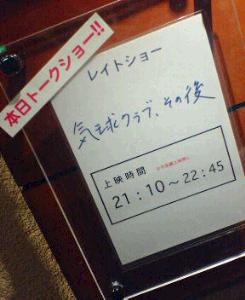 本日トークショー!!
レイトショー
気球クラブ、その後
上映時間
21:10～22:45